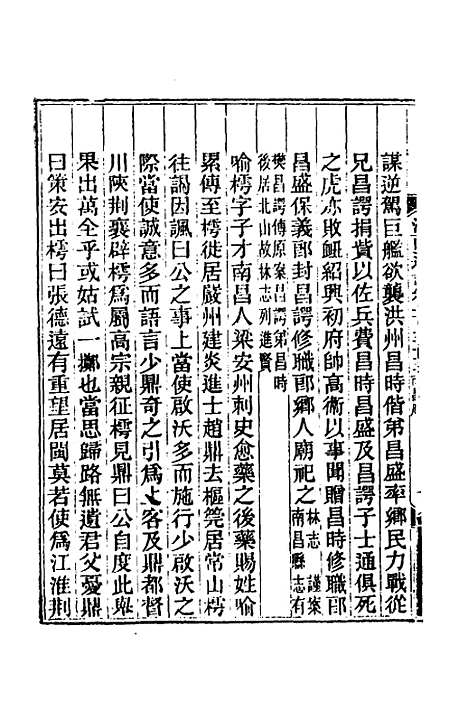 謀逆駕巨艦欲襲洪州昌時偕弟昌盛率鄉民力戰從
兄昌諤捐貲以佐兵費昌時昌盛及昌諤子士通俱死
之虎亦敗衂紹興初府帥高衞以事聞贈昌時修職郎
昌盛保義郎封昌諤修職郎鄉人廟祀之林志 謹案南昌縣志有
樊昌諤傳原案昌諤弟昌時後居北山故林志列進賢
喻樗字子才南昌人梁安州刺史愈藥之後藥賜姓喻
累傳至樗徙居嚴州建炎進士趙鼎去樞筦居常山樗
往謁因諷曰公之事上當使啟沃多而施行少啟沃之
際當使誠意多而語言少鼎奇之引為上客及鼎都督
川陜荆襄辟樗為屬高宗親征樗見鼎曰公自度此舉
果出萬全乎或姑試一擲也當思歸路無遺君父憂鼎
曰策安出樗曰張德遠有重望居閩莫若使為江淮荆